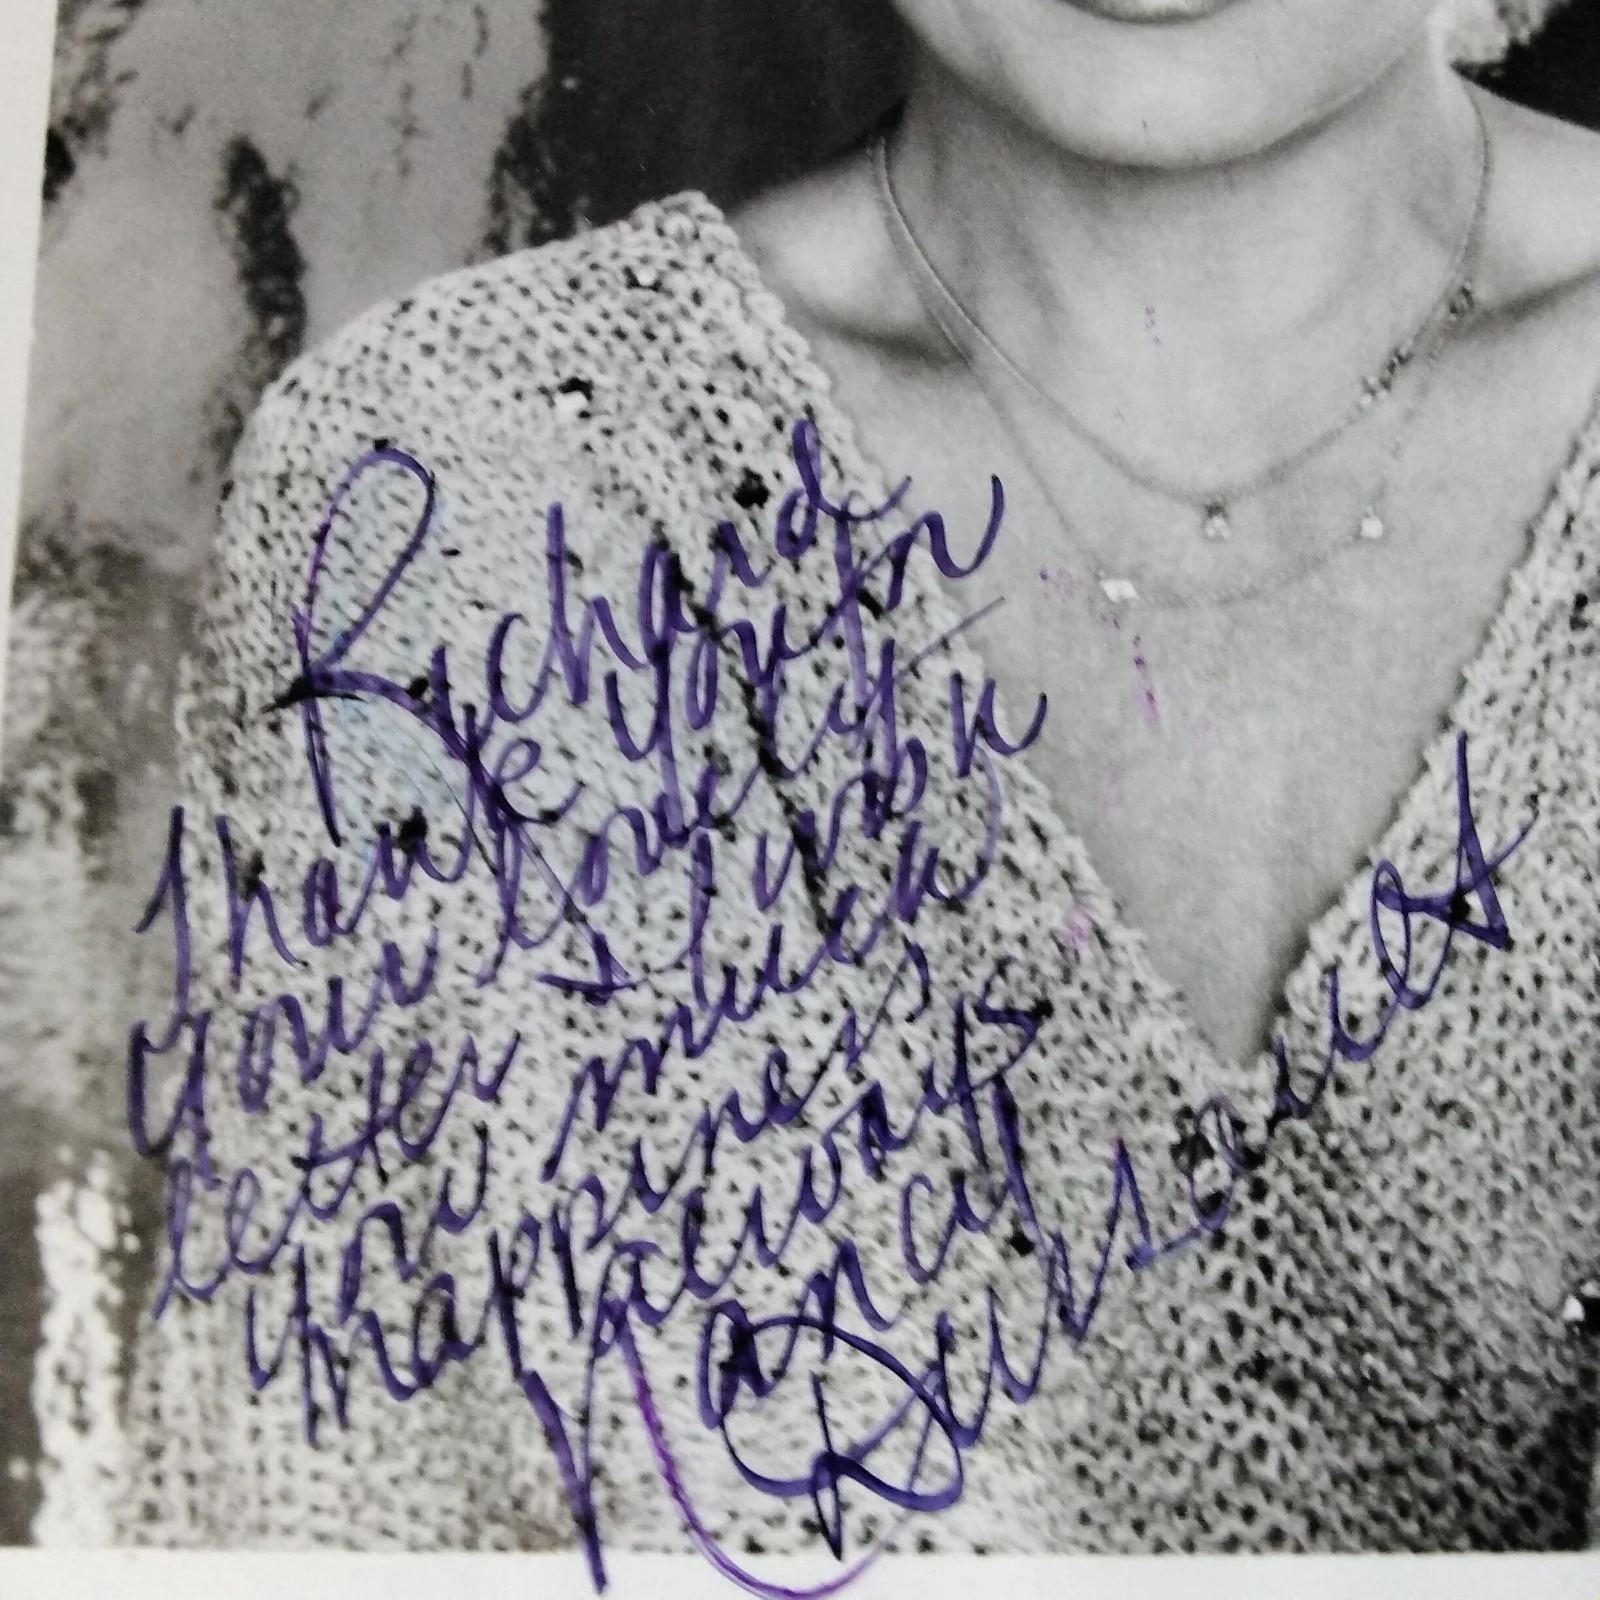 Richard
Thank you for
your lovely
letter I wish
you much
happiness
always
Nancy
Dussault